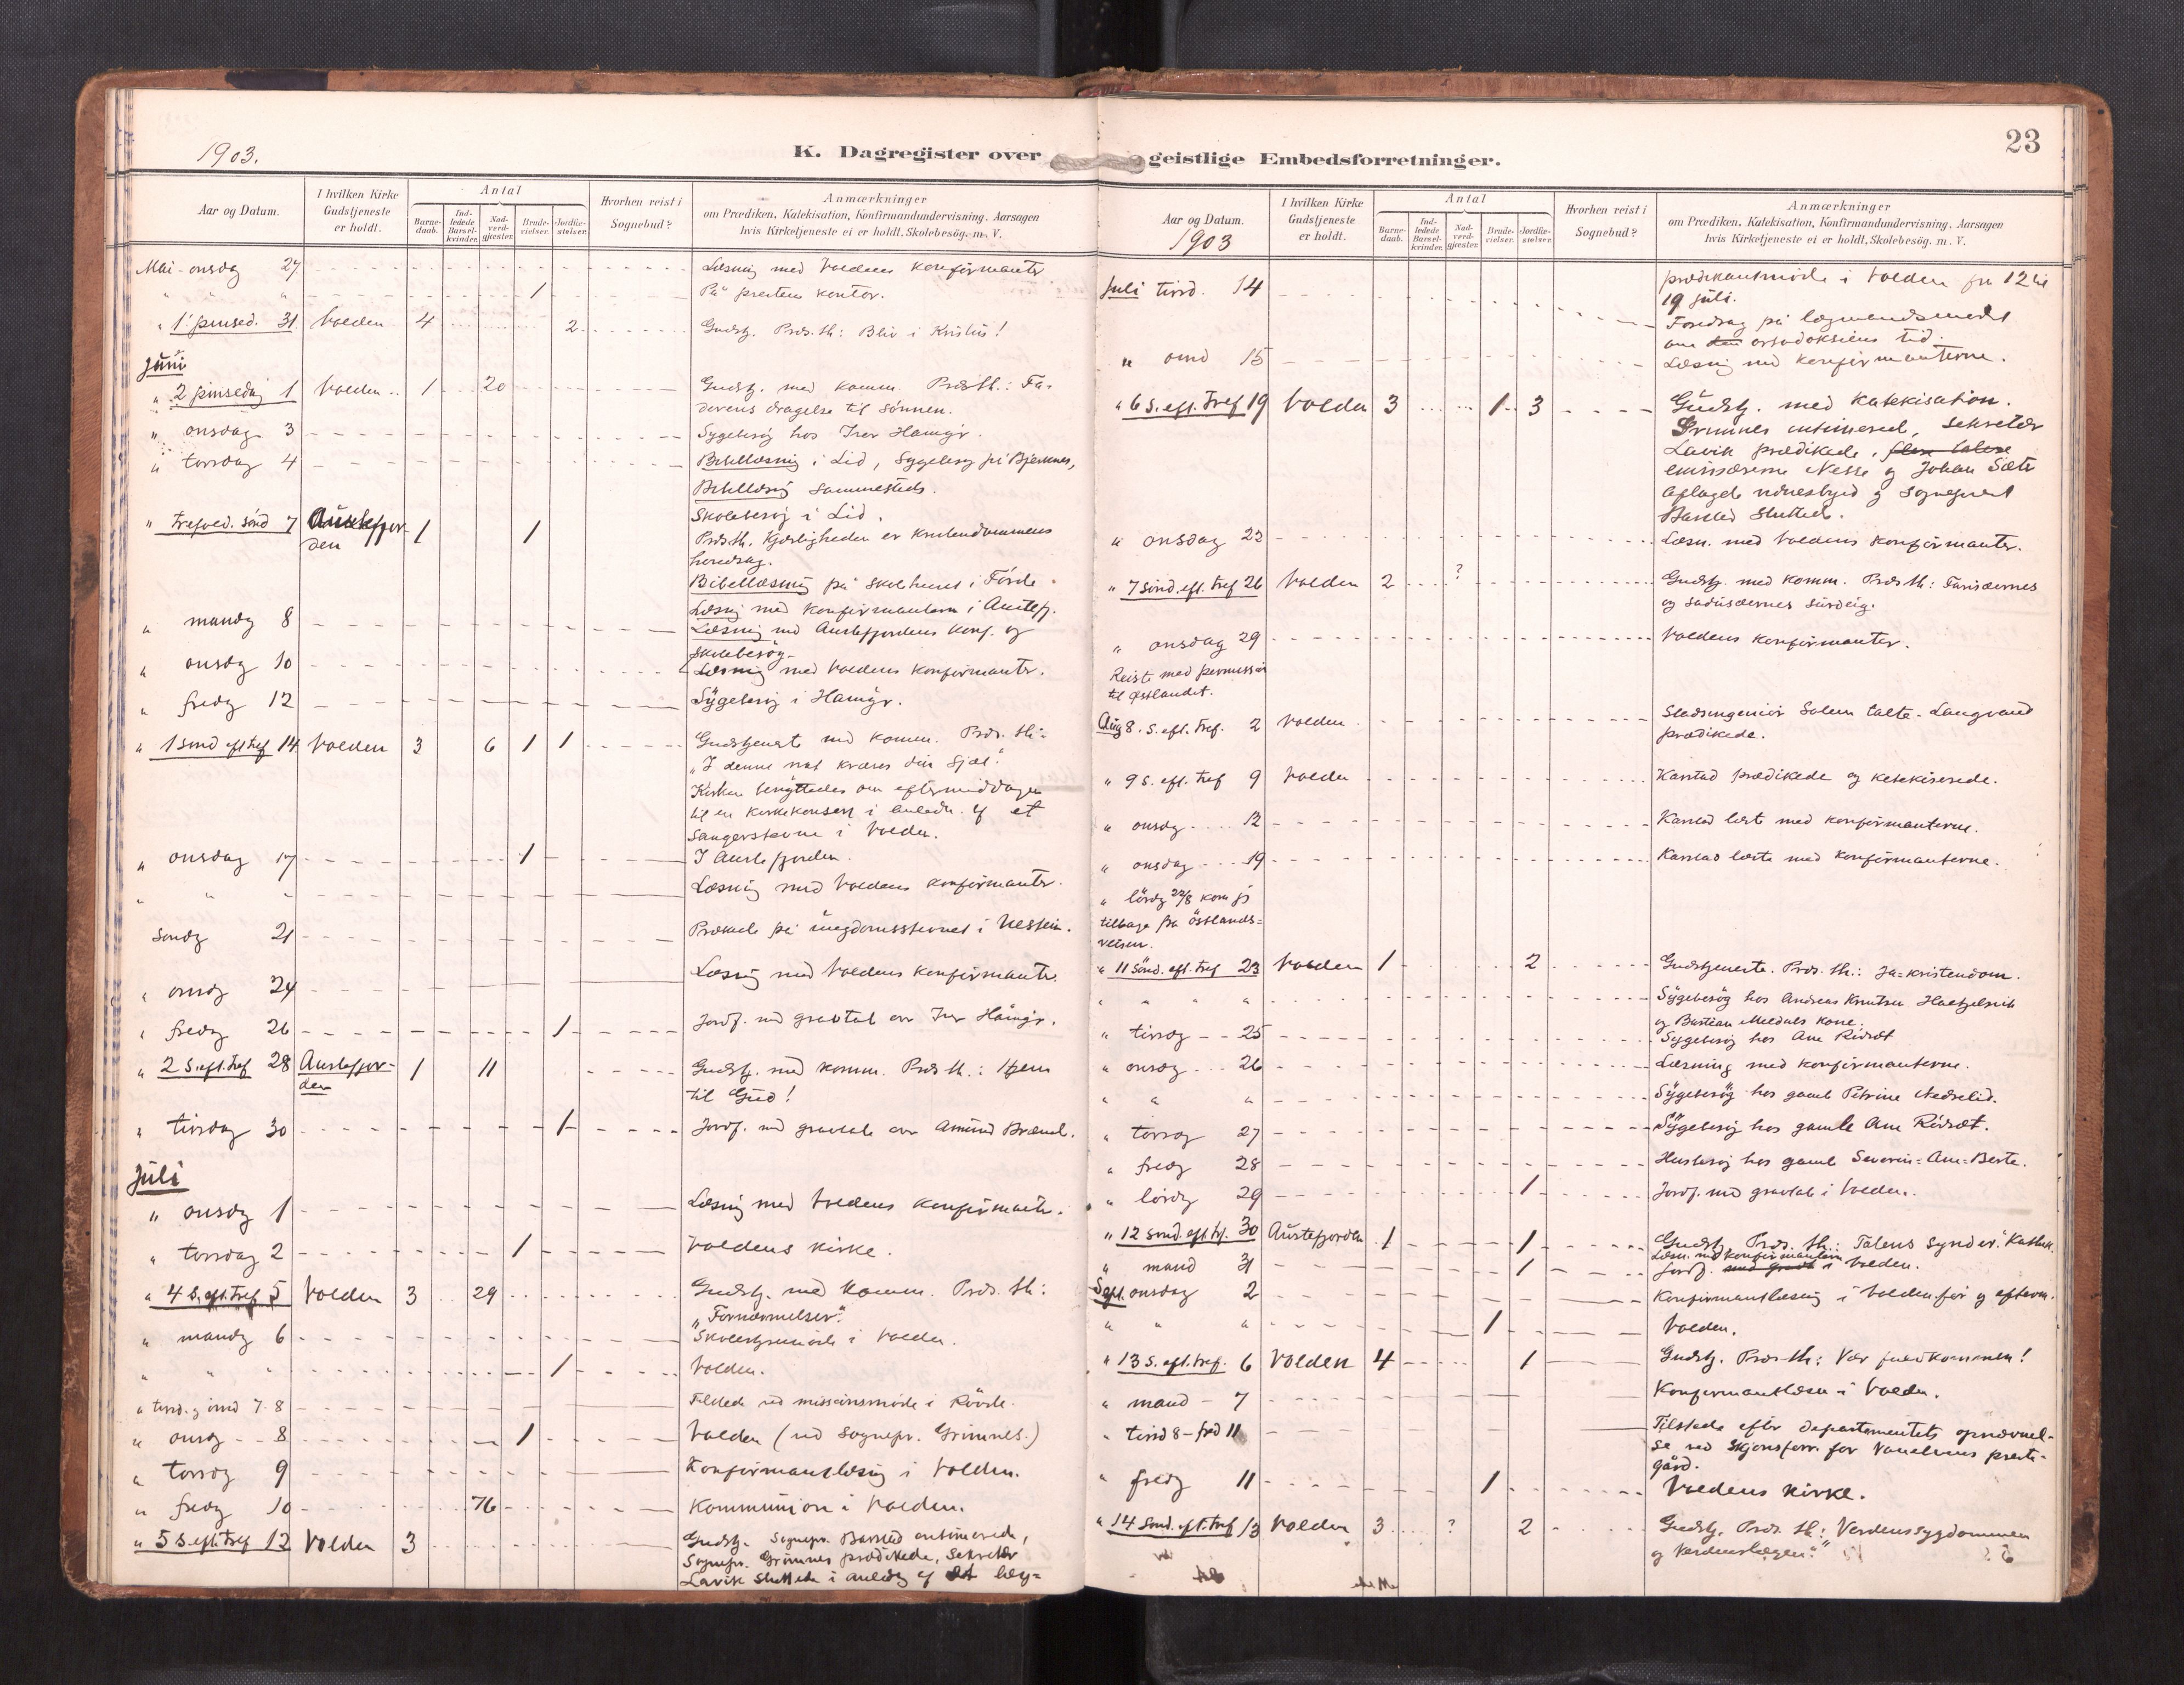 23
1903.
K. Dagregister over geistlige Embedsforretninger.
Aar og Datum.
I hvilken Kirke Gudstjeneste er holdt.
Antal
Barne-daab.
Ind-ledede Barsel-kvinder.
Nad-verd-gjester.
Brude-vielser.
Jordfæ-stelser.
Hvorhen reist i Sognebud?
Anmærkninger
om Prædiken, Katekisation, Konfirmandundervisning, Aarsagen
hvis Kirketjeneste ei er holdt, Skolebesög. m. V.
Mai - onsdag 27 Læsning med Voldens konfirmanter
" " " 1 På prestens kontor.
" 1 pinsed. 31 Volden 4 2 Gudstj. Præs. th: Bliv i Kristus!
Juni
" 2 pinsedag 1 Volden 1 20 Gudstj. med komm. Præs th.: Fa-
derens dragelse til Sønnen.
" onsdag 3 Sygebesög hos Iver Hamgr.
" torsdag 4 Bibellæsning i Lid, Sygebesög på Bjerknes,
Bibellæsnig sammesteds.
Skolebesög i Lid.
" trefold. sönd 7 Austefjor-
den 1 1 Præs th. Kjærligheden er kristendommens
hovedsag.
Bibellæsnig på skolehuset i Förde.
Læsnig med konfirmanterne i Austefj.
" mandag 8 Læsning med Austefjordens konf. og
skolebesög.
" onsdag 10 Læsning med Voldens konfirmanter.
" fredag 12 Sygebesög i Hamgr.
" 1 sönd eft tref 14 Volden 3 6 1 1 Gudstjeneste med komm. Præs. th:
"I denne nat kræves din Sjæl."
Kirken benyttedes om eftermiddagen
til en kirkekonsert i anledn. af et
sangerstevne i Volden.
" onsdag 17 1 I Austefjorden.
" " " Læsning med Voldens konfirmanter.
Söndag 21 Præked på ungdomsstevnet i
" onsdag 24 Læsnig med Voldens konfirmanter.
" fredag 26 1 Jordf. med gravtale over Iver Hamgr.
" 2 S. eft. tref 28 Austefjor-
den 1 11 Gudstj. med komm. Præs th.: Hjem
til Gud!
" tirsdag 30 1 Jordf. med gravtale over Amund
Juli
" onsdag 1 Læsnig med Voldens konfirmanter.
" torsdag 2 1 Voldens kirke.
" 4 S. eft. tref 5 Volden 3 29 Gudstj. med komm. Præs. th:
"Fornærmelser".
" mandag 6 Skolestyremöde i Volden.
" " " 1 Volden.
" tirsd. og onsd 7-8 Tilstede ved missionsmöde i Rövde.
" onsdag 8 1 Volden (ved Sognepr. Grimnes.)
" torsdag 9 Konfirmantlæsnig i Volden.
" fredag 10 76 Kommunion i Volden.
" 5 S. eft. tref 12 Volden 3 Gudstj. Sognepr. Barstad intimerede,
Sognepr. Grimnes prædikede, Sekretær
Lavik sluttede i anledng af det læg-
Aar og Datum.
1903
I hvilken Kirke Gudstjeneste er holdt.
Antal
Barne-daab.
Ind-ledede Barsel-kvinder.
Nad-verd-gjester.
Brude-vielser.
Jordfæ-stelser.
Hvorhen reist i Sognebud?
Anmærkninger
om Prædiken, Katekisation, Konfirmandundervisning, Aarsagen
hvis Kirketjeneste ei er holdt, Skolebesög. m. V.
prædikantmöde i Volden fra 12 til
19 juli.
Juli tirsd. 14 Foredrag på lægmandsmödet
om den ortodoksiens tid.
" onsd 15 Læsnig med konfirmanterne.
" 6 S. eft. Tref 19 Volden 3 1 3 Gudstj. med Katekisation.
Grimnes intimered, Sekretær
Lavik prædikede,
emissærerne Nesse og Johan Sæter
aflagde vidnesbyrd og sogneprest
Barstad sluttede.
" onsdag 22 Læsn. med Voldens konfirmanter.
" 7 sönd. eft. tref 26 Volden 2 ? Gudstj. med komm. Præs th.: Farisæernes
og sadusæernes surdeig.
" onsdag 29 Voldens konfirmanter.
Reiste med permission
til östlandet.
Aug 8. S. eft. tref. 2 Volden Stadsingeniör Solem talte - Langvand
prædikede.
" 9 S. eft. tref 9 Volden Karstad prædikede og katekiserede.
" onsdag 12 Karstad læste med konfirmanterne.
" onsdag 19 Karstad læste med konfirmanterne.
" lördag 22/8 kom jeg
tilbage fra östlands-
reisen.
" 11 Sönd. eft. tref 23 Volden 1 2 Gudstjeneste. Præs. th.: Ja-kristendom.
" " " " Sygebesög hos Andreas Knutsen
og Bastian Meedals kone.
" tirsdag 25 Sygebesög hos Ane Rödsæt
" onsdag 26 Læsning med konfirmanterne.
" " " Sygebesög hos gamle Petrine Nedrelid.
" torsdag 27 Sygebesög hos gamle Ane Rödsæt.
" fredag 28 Husbesög hos gamle Severin-Ane-Berte.
" lördag 29 1 Jordf. med gravtale i Volden.
" 12 sönd. eft. tref. 30 Austefjorden 1 1 Gudstj. Præs. th.: Talens synder. Katek.
Læsn. med konfirmanterne
" mand 31 1 Jordf. med gravt i Volden.
Sept. onsdag 2 Konfirmantlæsnig i Volden för og efterm.
" " " 1 Volden.
" 13 S. eft. tref. 6 Volden 4 1 Gudstj. Præs th: Vær fuldkommen!
" mand - 7 Konfirmantlæsn i Volden.
" tirsd 8 - fred 11 Tilstede efter departementets opnævnel-
se ved skjönsforr. for Vanelvens preste-
gård.
" fredag 11 1 Voldens kirke.
" 14 Sönd. eft. tref 13 Volden 3 ? 2 Gudstj. Præs. th: "Verdenssygdommen
og Verdenslægen."